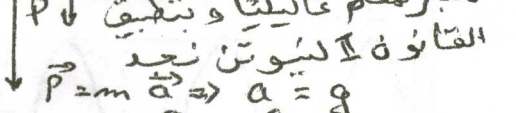 P المعلم غاليليا وبتطبيق
القانون II لنيوتن نجد
P⃗ = m a⃗ => a = g